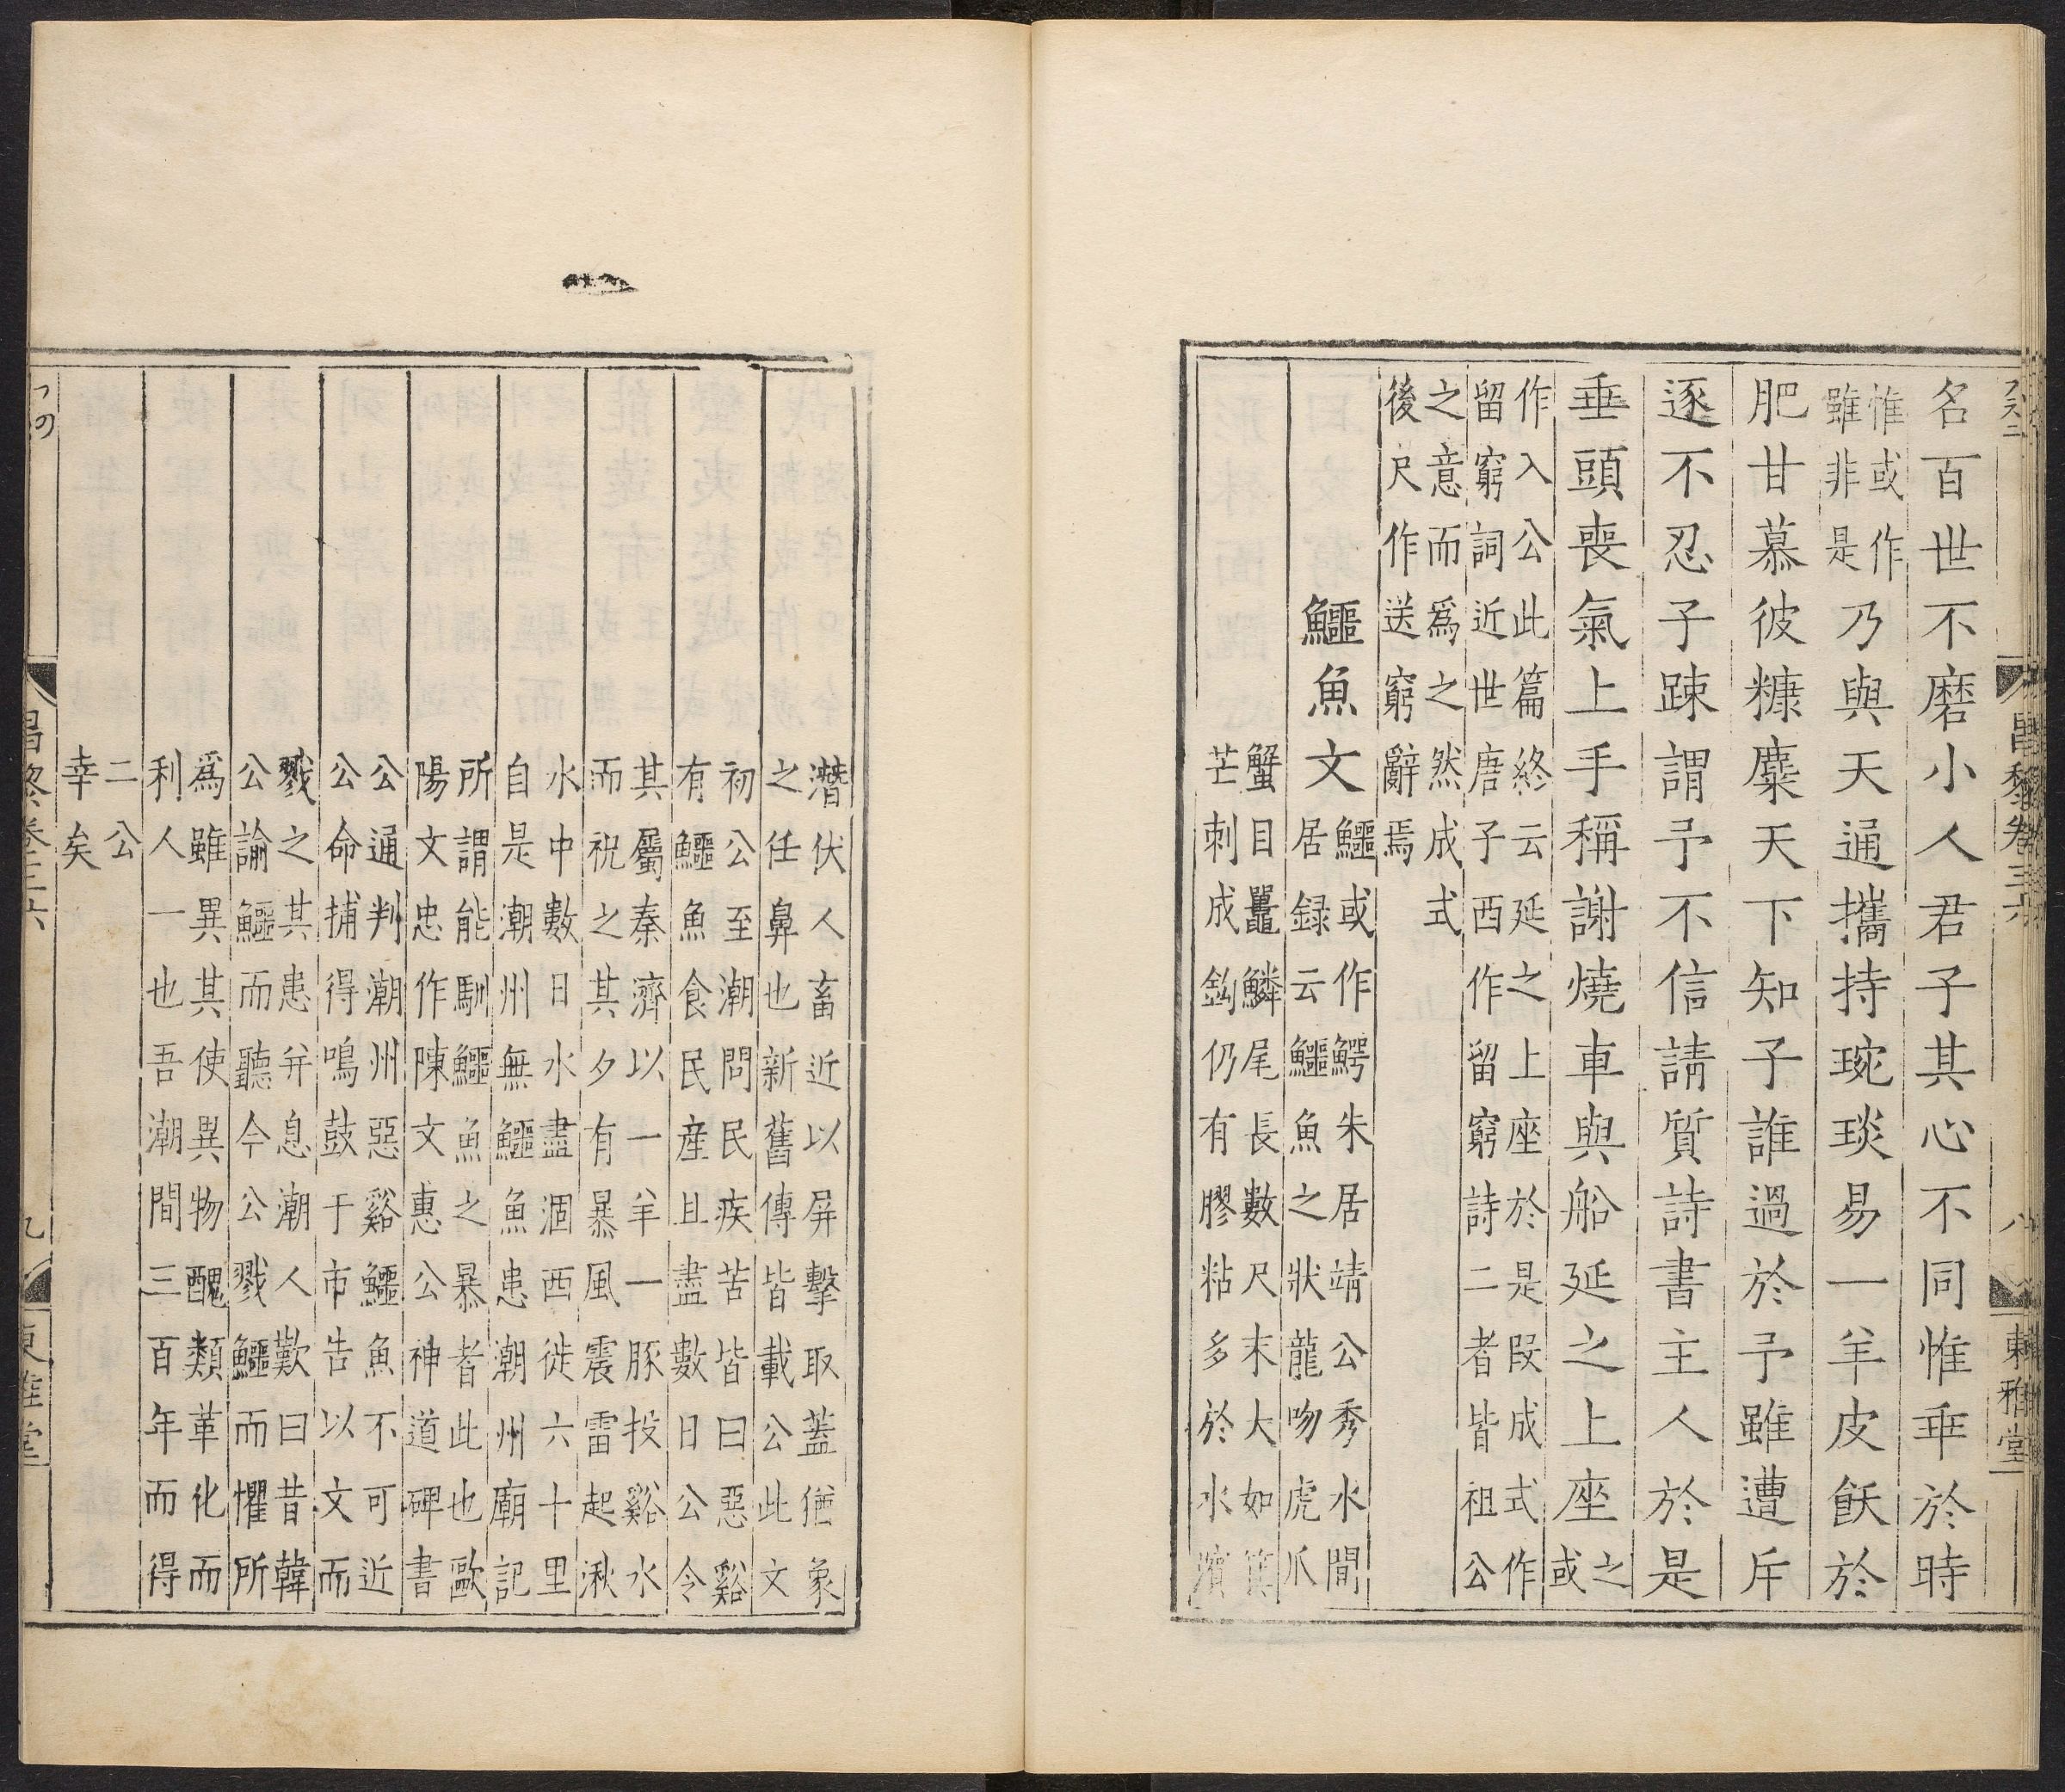 名百世不磨小人君子其心不同惟乖於時
惟或作
雖非是
乃與天通攜持琬琰易一羊皮飫於
肥甘慕彼糠糜天下知子誰過於予雖遭斥
逐不忍子踈謂予不信請質詩書主人於是
垂頭喪氣上手稱謝燒車與船延之上座
之
或
作入公此篇終云延之上座於是段成式作
留窮詞近世唐子西作留窮詩二者皆祖公
之意而爲之然成式
後尺作送窮辭焉
鱷魚文
鱷或作鰐朱居靖公秀水閒
居録云鱷魚之狀龍吻虎爪
蟹目鼉鱗尾長數尺末大如箕
芒刺成鉤仍有膠粘多於水濱
昌黎卷三六
八
東雅堂
潛伏人畜近以屏擊取蓋猶象
之任鼻也新舊傳皆載公此文
初公至潮問民疾苦皆曰惡谿
有鱷魚食民産且盡數日公令
其屬秦濟以一羊一豚投谿水
而祝之其夕有暴風震雷起湫
水中數日水盡涸西徙六十里
自是潮州無鱷魚患潮州廟記
所謂能馴鱷魚之暴者此也歐
陽文忠作陳文惠公神道碑書
公通判潮州惡谿鱷魚不可近
公命捕得鳴鼓于市告以文而
戮之其患弁息潮人歎曰昔韓
公諭鱷而聽今公戮鱷而懼所
爲雖異其使異物醜類革化而
利人一也吾潮間三百年而得
二公
幸矣
昌黎卷三六
九
東雅堂